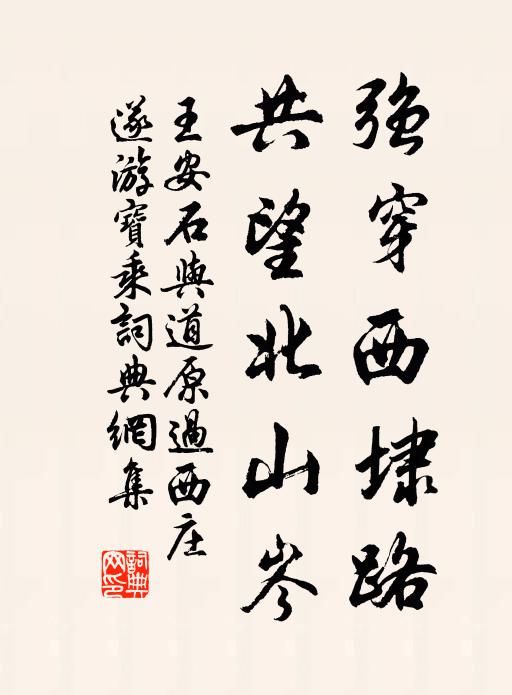 強穿西埭路
共望北山岑
王安石與道原過西庄
遂游寶乘詞典網集
詞典网印